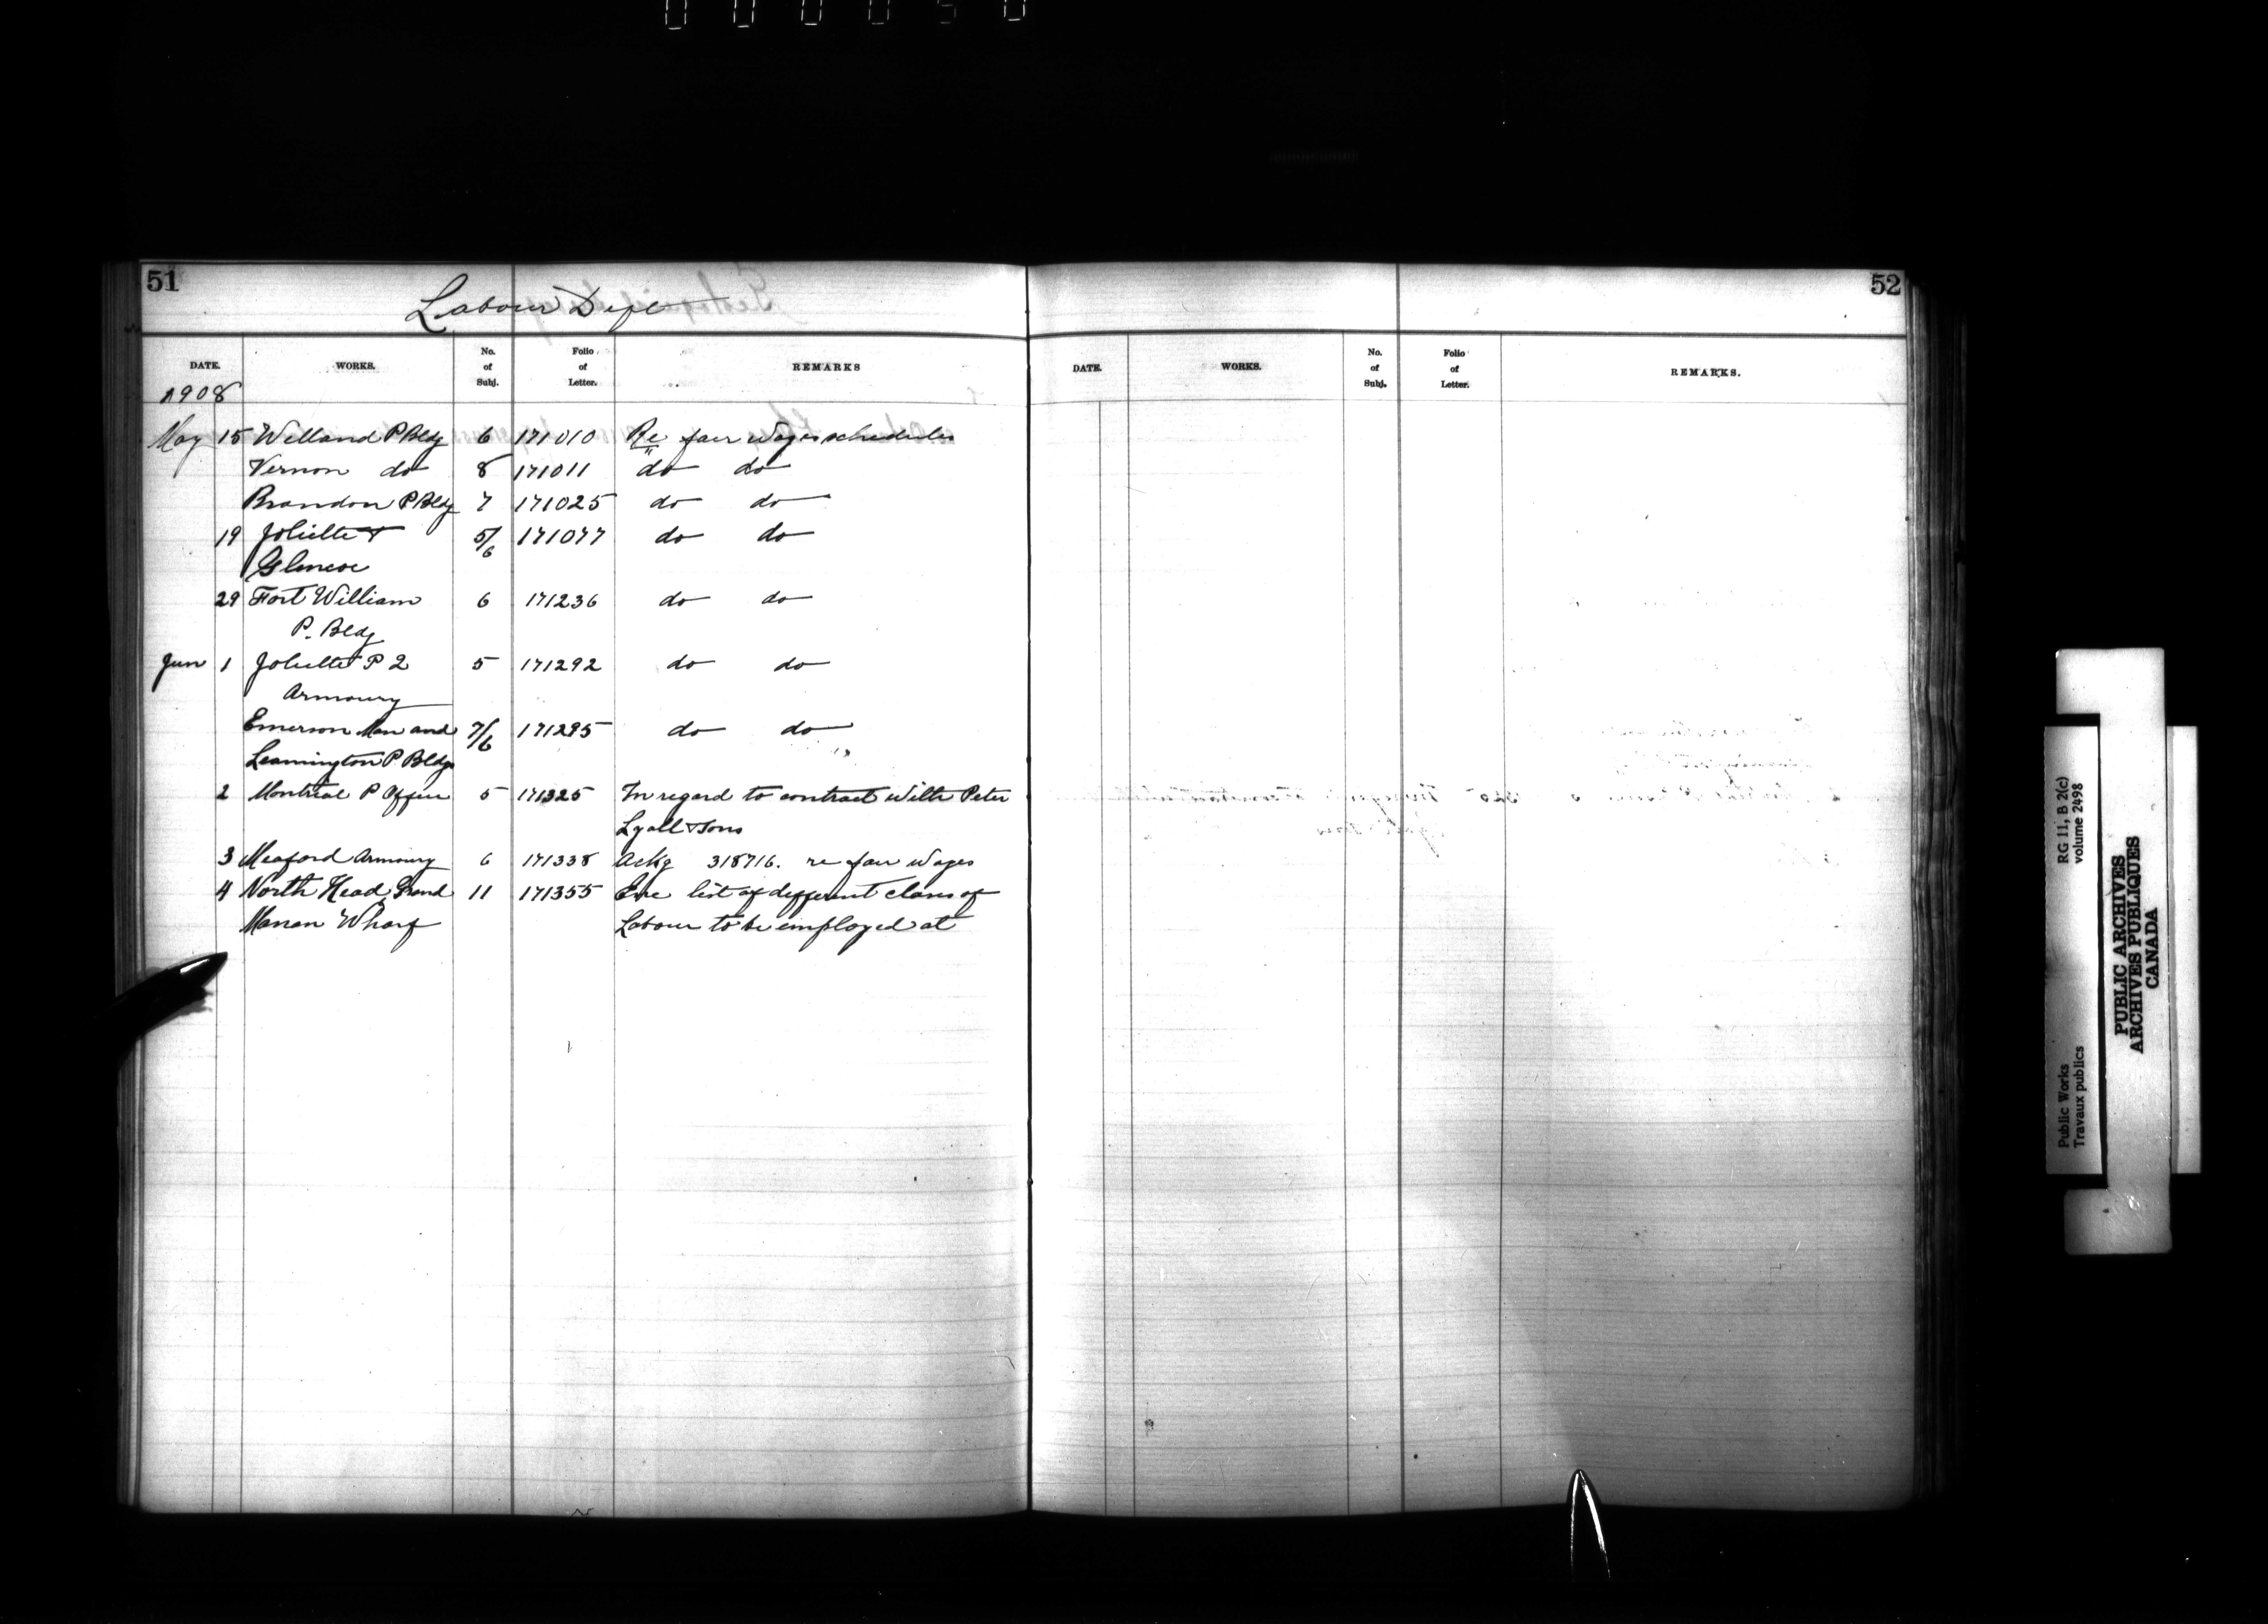 51
Labour Dept
DATE. WORKS. No. of Subj. Folio of Letter. REMARKS
1908
May 15 Welland P Bldg 6 171010 Re fair wages schedules
Vernon do 8 171011 do do
Brandon P Bldg 7 171025 do do
19 Joliette & 5/6 171077 do do
Glencoe
29 Fort William 6 171236 do do
P. Bldg
Jun 1 Joliette P 2 5 171292 do do
Armoury
Emerson Man and 7/6 171295 do do
Leamington P Bldgs
2 Montreal P Office 5 171325 In regard to contract with Peter
Lyall & Sons
3 Meaford Armoury 6 171338 Ackg 318716. re fair wages
4 North Head, Grand 11 171355 Enc list of different class of
Manan Wharf Labour to be employed at
52
DATE. WORKS. No. of Subj. Folio of Letter. REMARKS.
Public Works
Travaux publics
RG 11, B 2(c)
volume 2498
PUBLIC ARCHIVES
ARCHIVES PUBLIQUES
CANADA